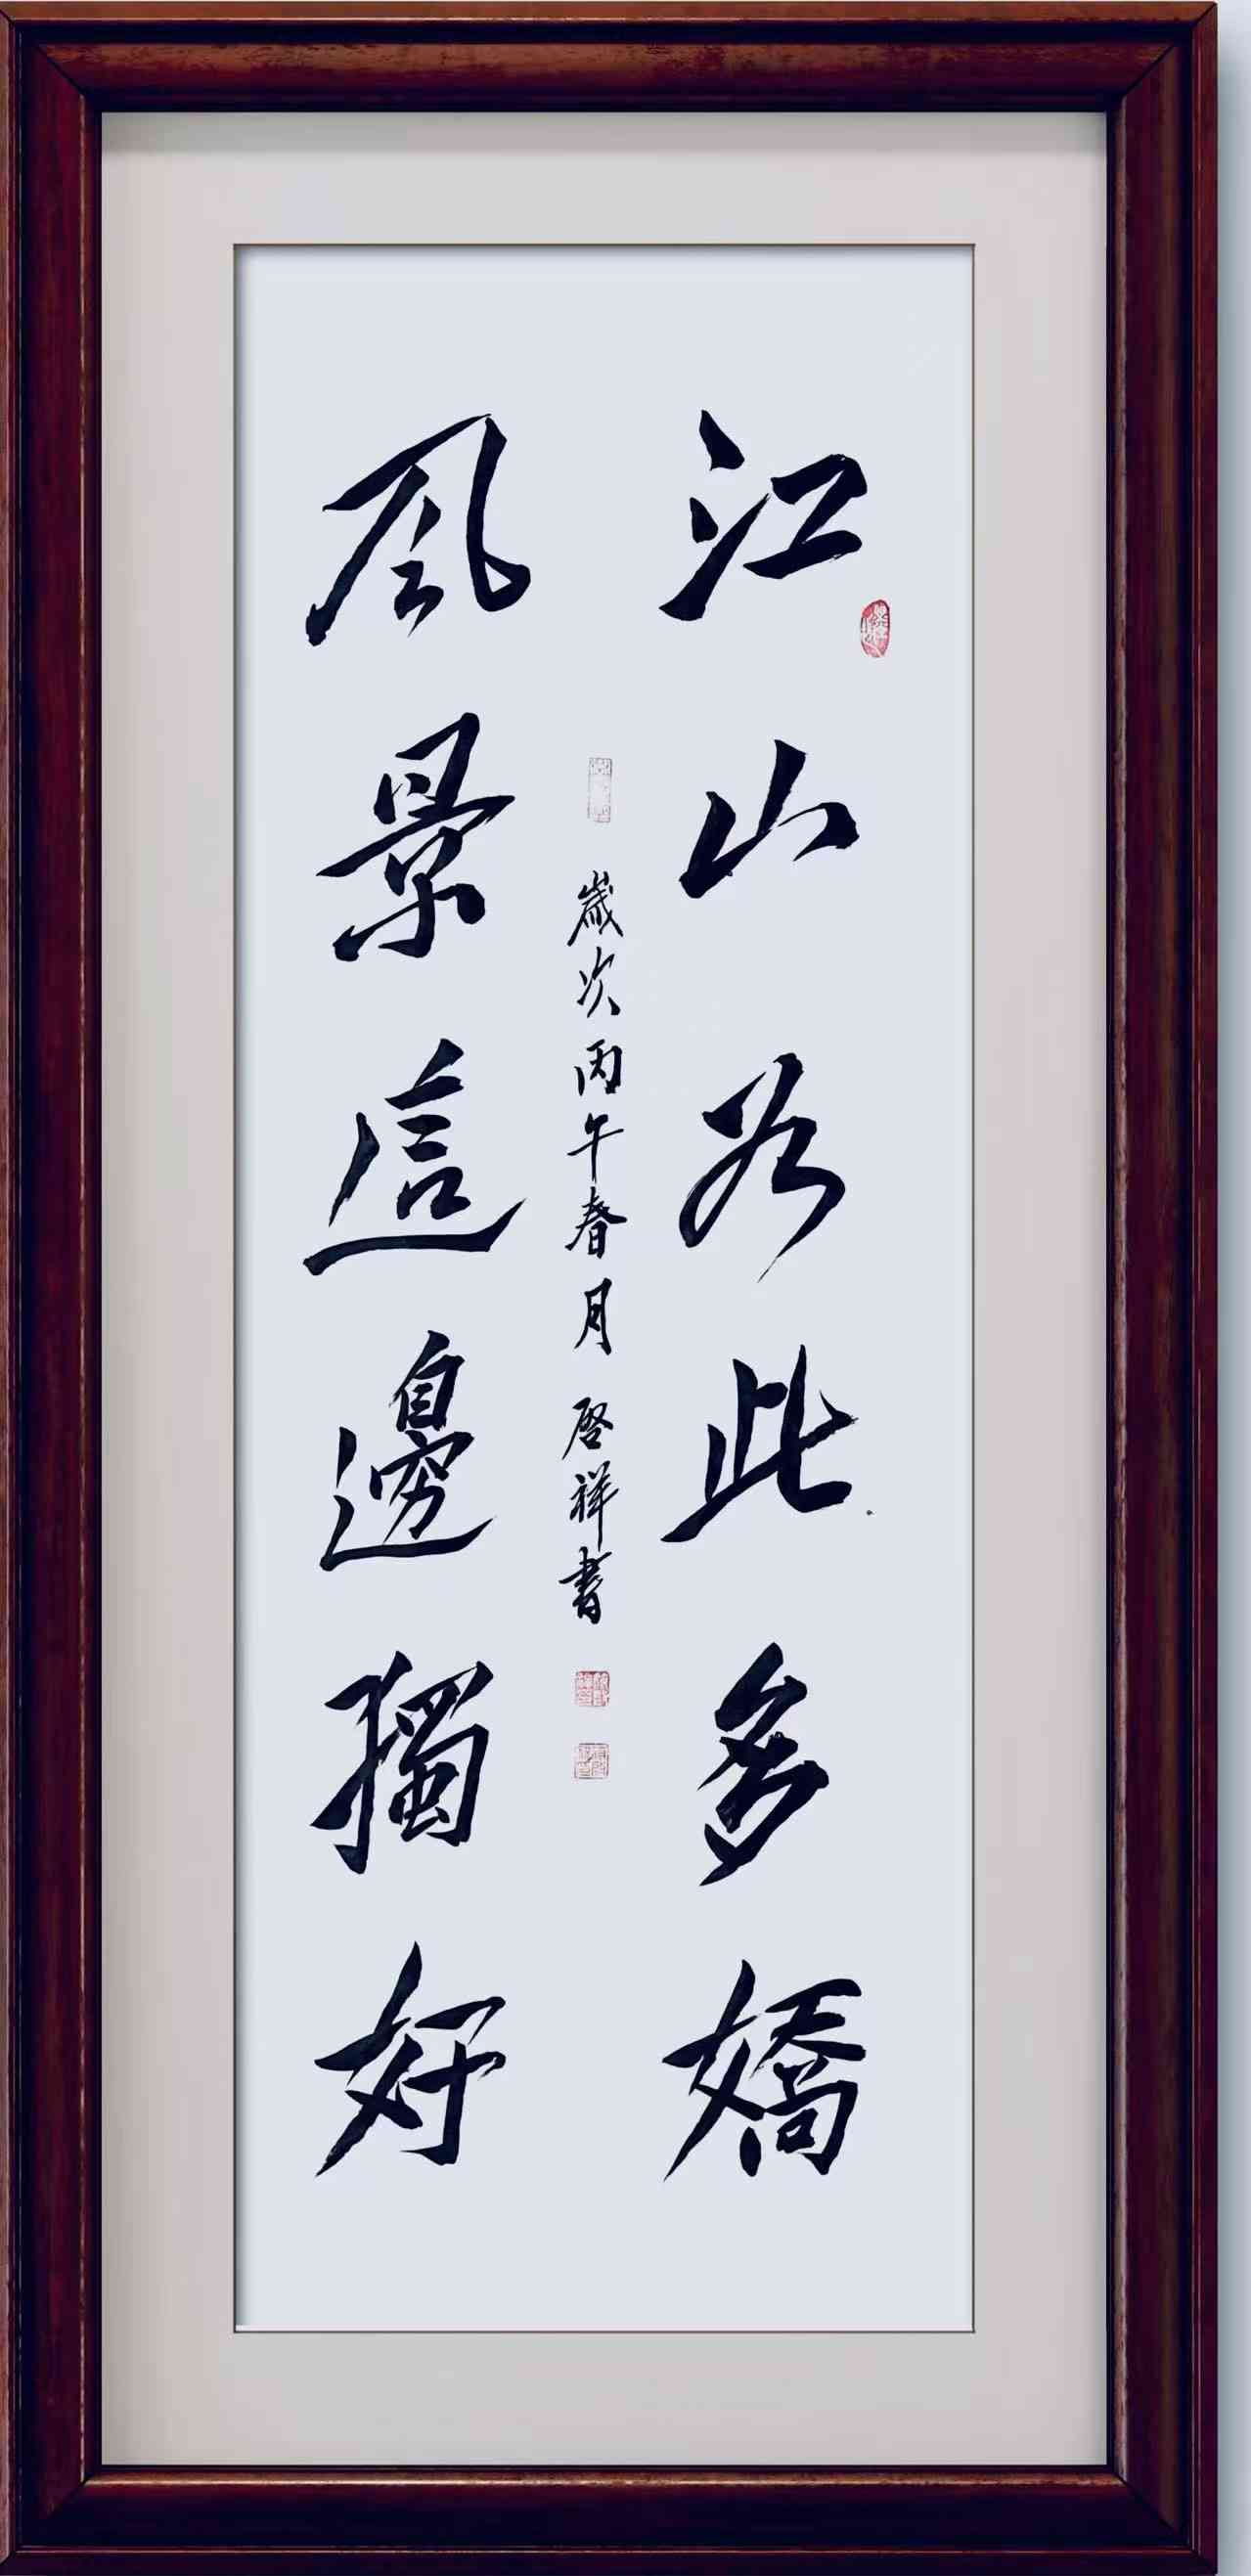 江山如此多嬌
風景這邊獨好
歲次丙午春月 啓祥書